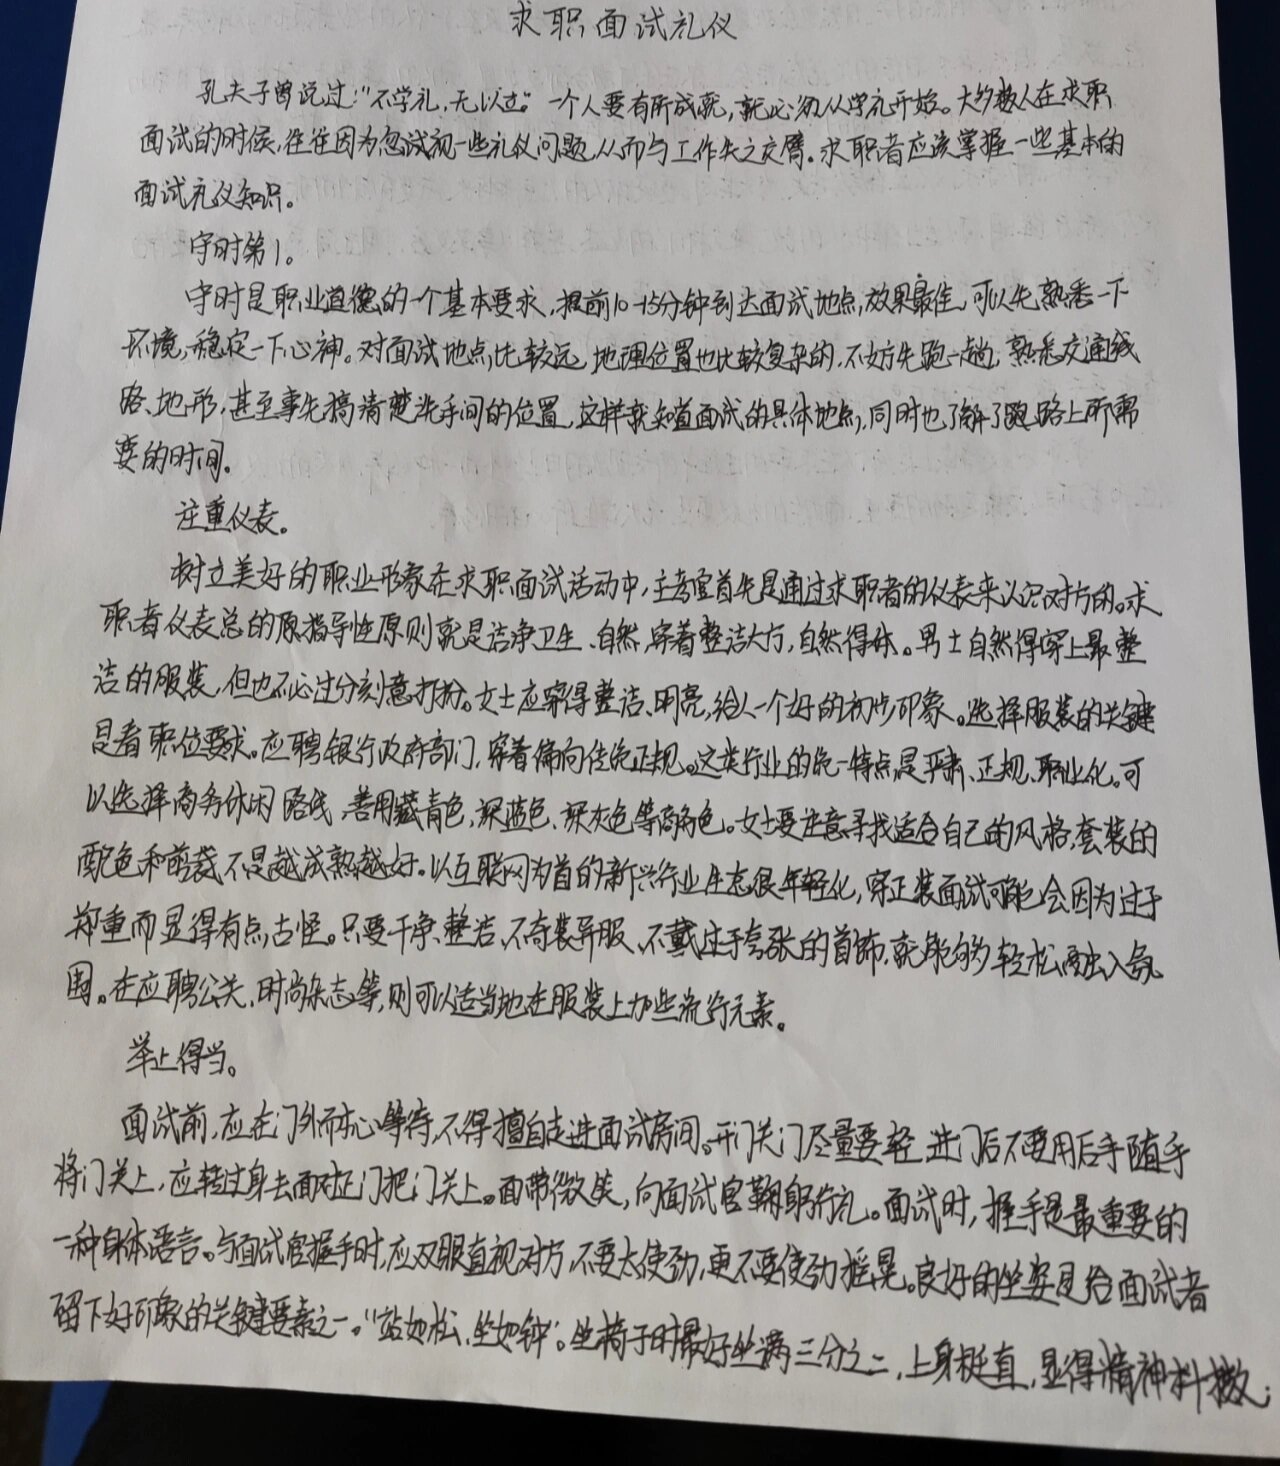 求职面试礼仪
孔夫子曾说过:“不学礼,无以立。”一个人要有所成就,就必须从学礼开始。大多数人在求职
面试的时候,往往因为忽视一些礼仪问题,从而与工作失之交臂。求职者应该掌握一些基本的
面试礼仪知识。
守时第1。
守时是职业道德的一个基本要求,提前10-15分钟到达面试地点,效果最佳,可以先熟悉一下
环境,稳定一下心神。对面试地点比较远,地理位置也比较复杂的,不妨先跑一趟,熟悉交通线
路、地形,甚至事先搞清楚洗手间的位置,这样就知道面试的具体地点,同时也了解了路上所需
要的时间。
注重仪表。
树立美好的职业形象在求职面试活动中,主考官首先是通过求职者的仪表来认识对方的。求
职者仪表总的原指导性原则就是洁净卫生、自然,穿着整洁大方,自然得体。男士自然得穿上最整
洁的服装,但也不必过分刻意打扮。女士应穿得整洁、明亮,给人一个好的初步印象。选择服装的关键
是看职位要求。应聘银行政府部门,穿着偏向传统正规。这类行业的统一特点是严肃、正规、职业化。可
以选择商务休闲路线,善用藏青色,深蓝色、深灰色等商务色。女士要注意寻找适合自己的风格,套装的
配色和剪裁不是越成熟越好。以互联网为首的新兴行业生态很年轻化,穿正装面试可能会因为过于
郑重而显得有点古怪。只要干净、整洁、不奇装异服、不戴过于夸张的首饰,就能够轻松融入氛
围。在应聘公关、时尚杂志等,则可以适当地在服装上加些流行元素。
举止得当。
面试前,应在门外耐心等待,不得擅自走进面试房间。开门关门尽量要轻,进门后不要用后手随手
将门关上,应转过身去面对正门把门关上。面带微笑,向面试官鞠躬行礼。面试时,握手是最重要的
一种身体语言。与面试官握手时,应双眼直视对方,不要太使劲,更不要使劲摇晃。良好的坐姿是给面试者
留下好印象的关键要素之一。“站如松,坐如钟”。坐椅子时最好坐满三分之二,上身挺直,显得精神抖擞;